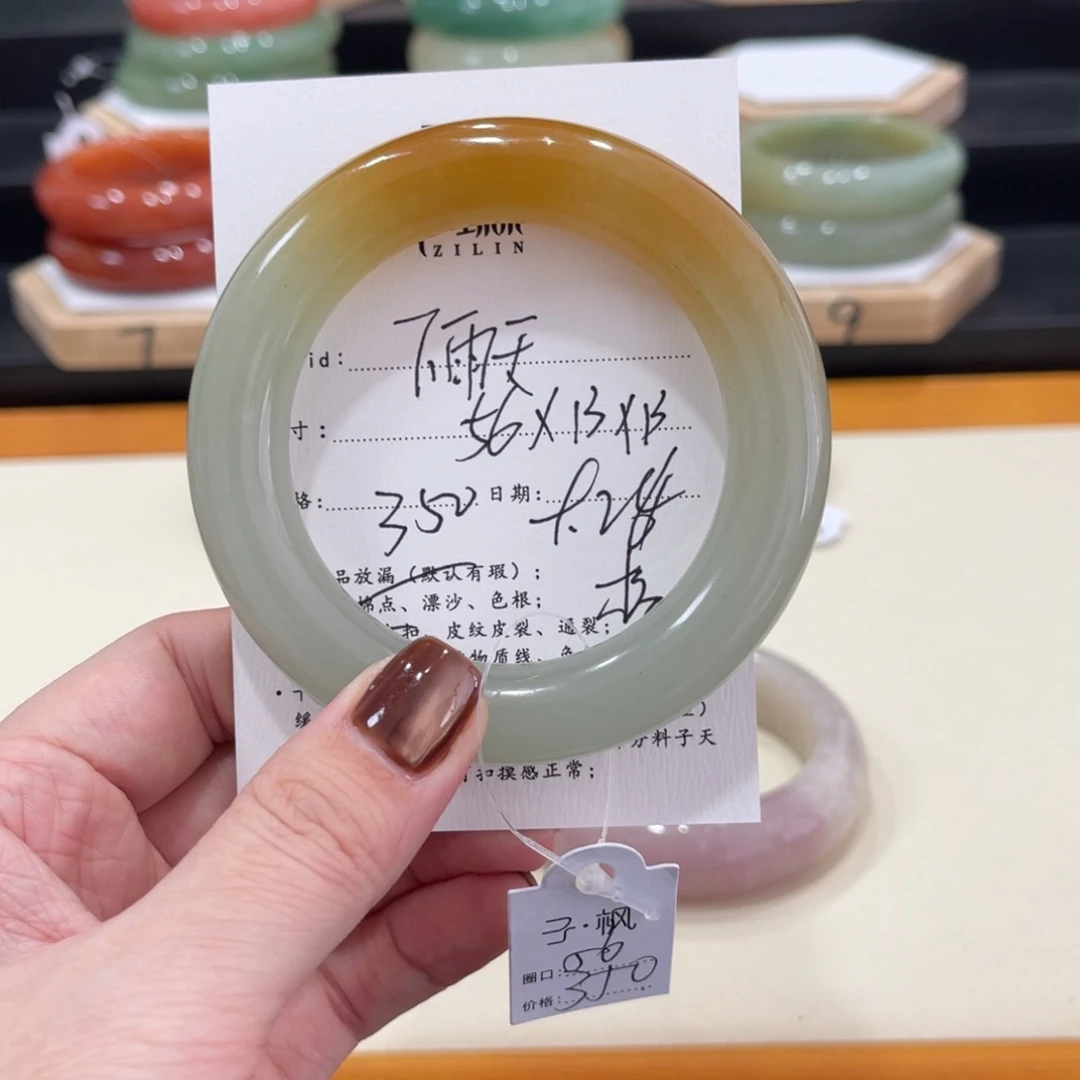 ZILIN
id: 雨天
寸: 56X13X13
格: 350 日期:
品放漏(默认有瑕);
棉点、漂沙、色根;
扣、皮纹皮裂、通裂;
物质线、色
料子天
扣摸感正常;
子·枫
圈口: 56
价格: 350
7
9